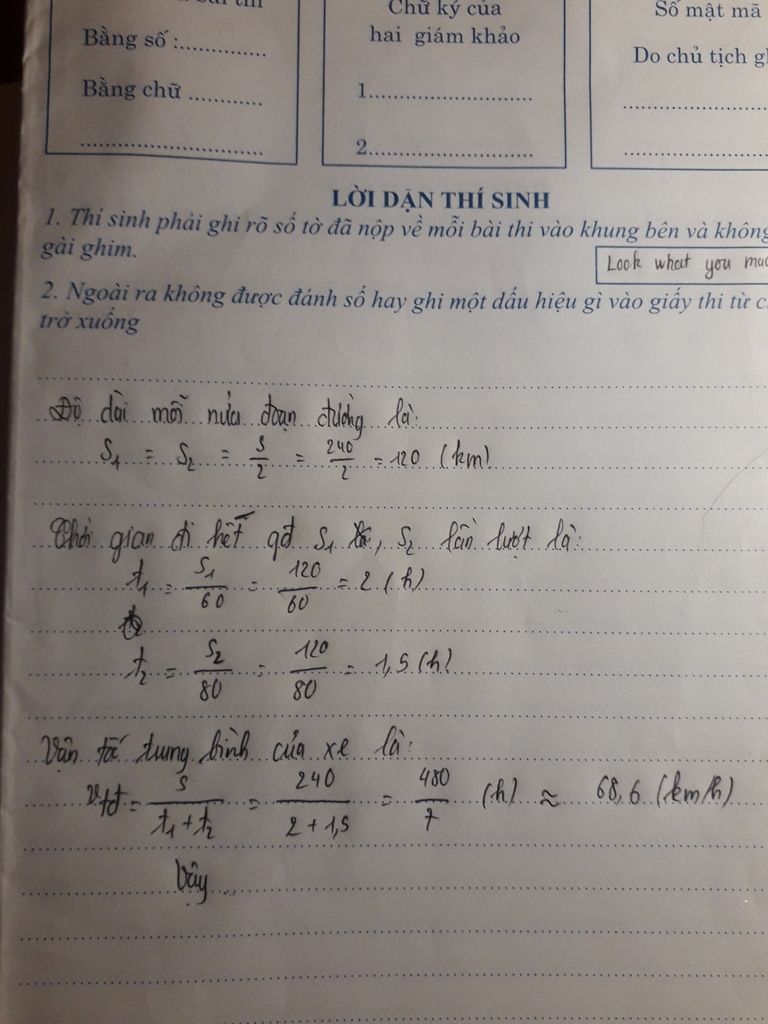 Chữ ký của
hai giám khảo
1
2
Bằng số :
Bằng chữ
Số mật mã
Do chủ tịch
LỜI DẶN THÍ SINH
1. Thí sinh phải ghi rõ số tờ đã nộp về mỗi bài thi vào khung bên và không
gài ghim.
Look what you
2. Ngoài ra không được đánh số hay ghi một dấu hiệu gì vào giấy thi từ
trở xuống
Độ dài mỗi nửa đoạn đường là:
S1 = S2 = S/2 = 240/2 = 120 (km)
Thời gian đi hết qđ S1, S2 lần lượt là:
t1 = S1/60 = 120/60 = 2 (h)
t2 = S2/80 = 120/80 = 1,5 (h)
Vận tốc trung bình của xe là:
vtb = S/(t1 + t2) = 240/(2 + 1,5) = 480/7 (h) ≈ 68,6 (km/h)
Vậy ...